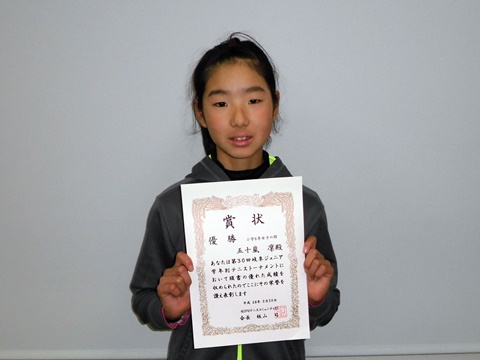 賞状
優勝 小学6年女子の部
五十嵐 凛殿
あなたは第30回岐阜ジュニア
学年別テニストーナメントに
おいて頭書の優れた成績を
収められたのでここにその栄誉を
讃え表彰します
平成
会長